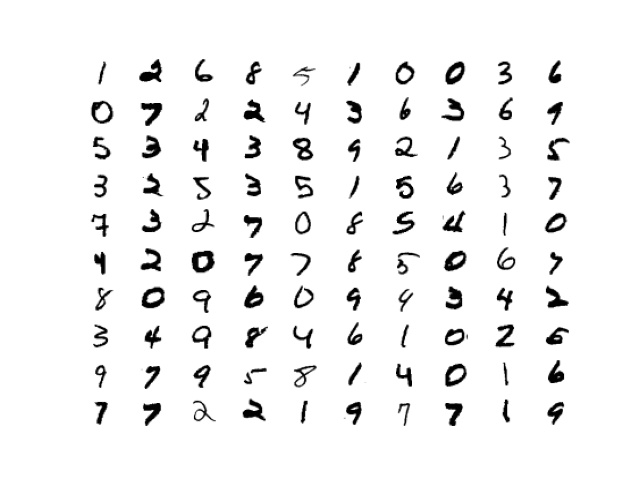 1 2 6 8 5 1 0 0 3 6
0 7 2 2 4 3 6 3 6 9
5 3 4 3 8 9 2 1 3 5
3 2 5 3 5 1 5 6 3 7
7 3 2 7 0 8 5 4 1 0
4 2 0 7 7 8 5 0 6 7
8 0 9 6 0 9 9 3 4 2
3 4 9 8 4 6 1 0 2 6
9 7 9 5 8 1 4 0 1 6
7 7 2 2 1 9 7 7 1 9